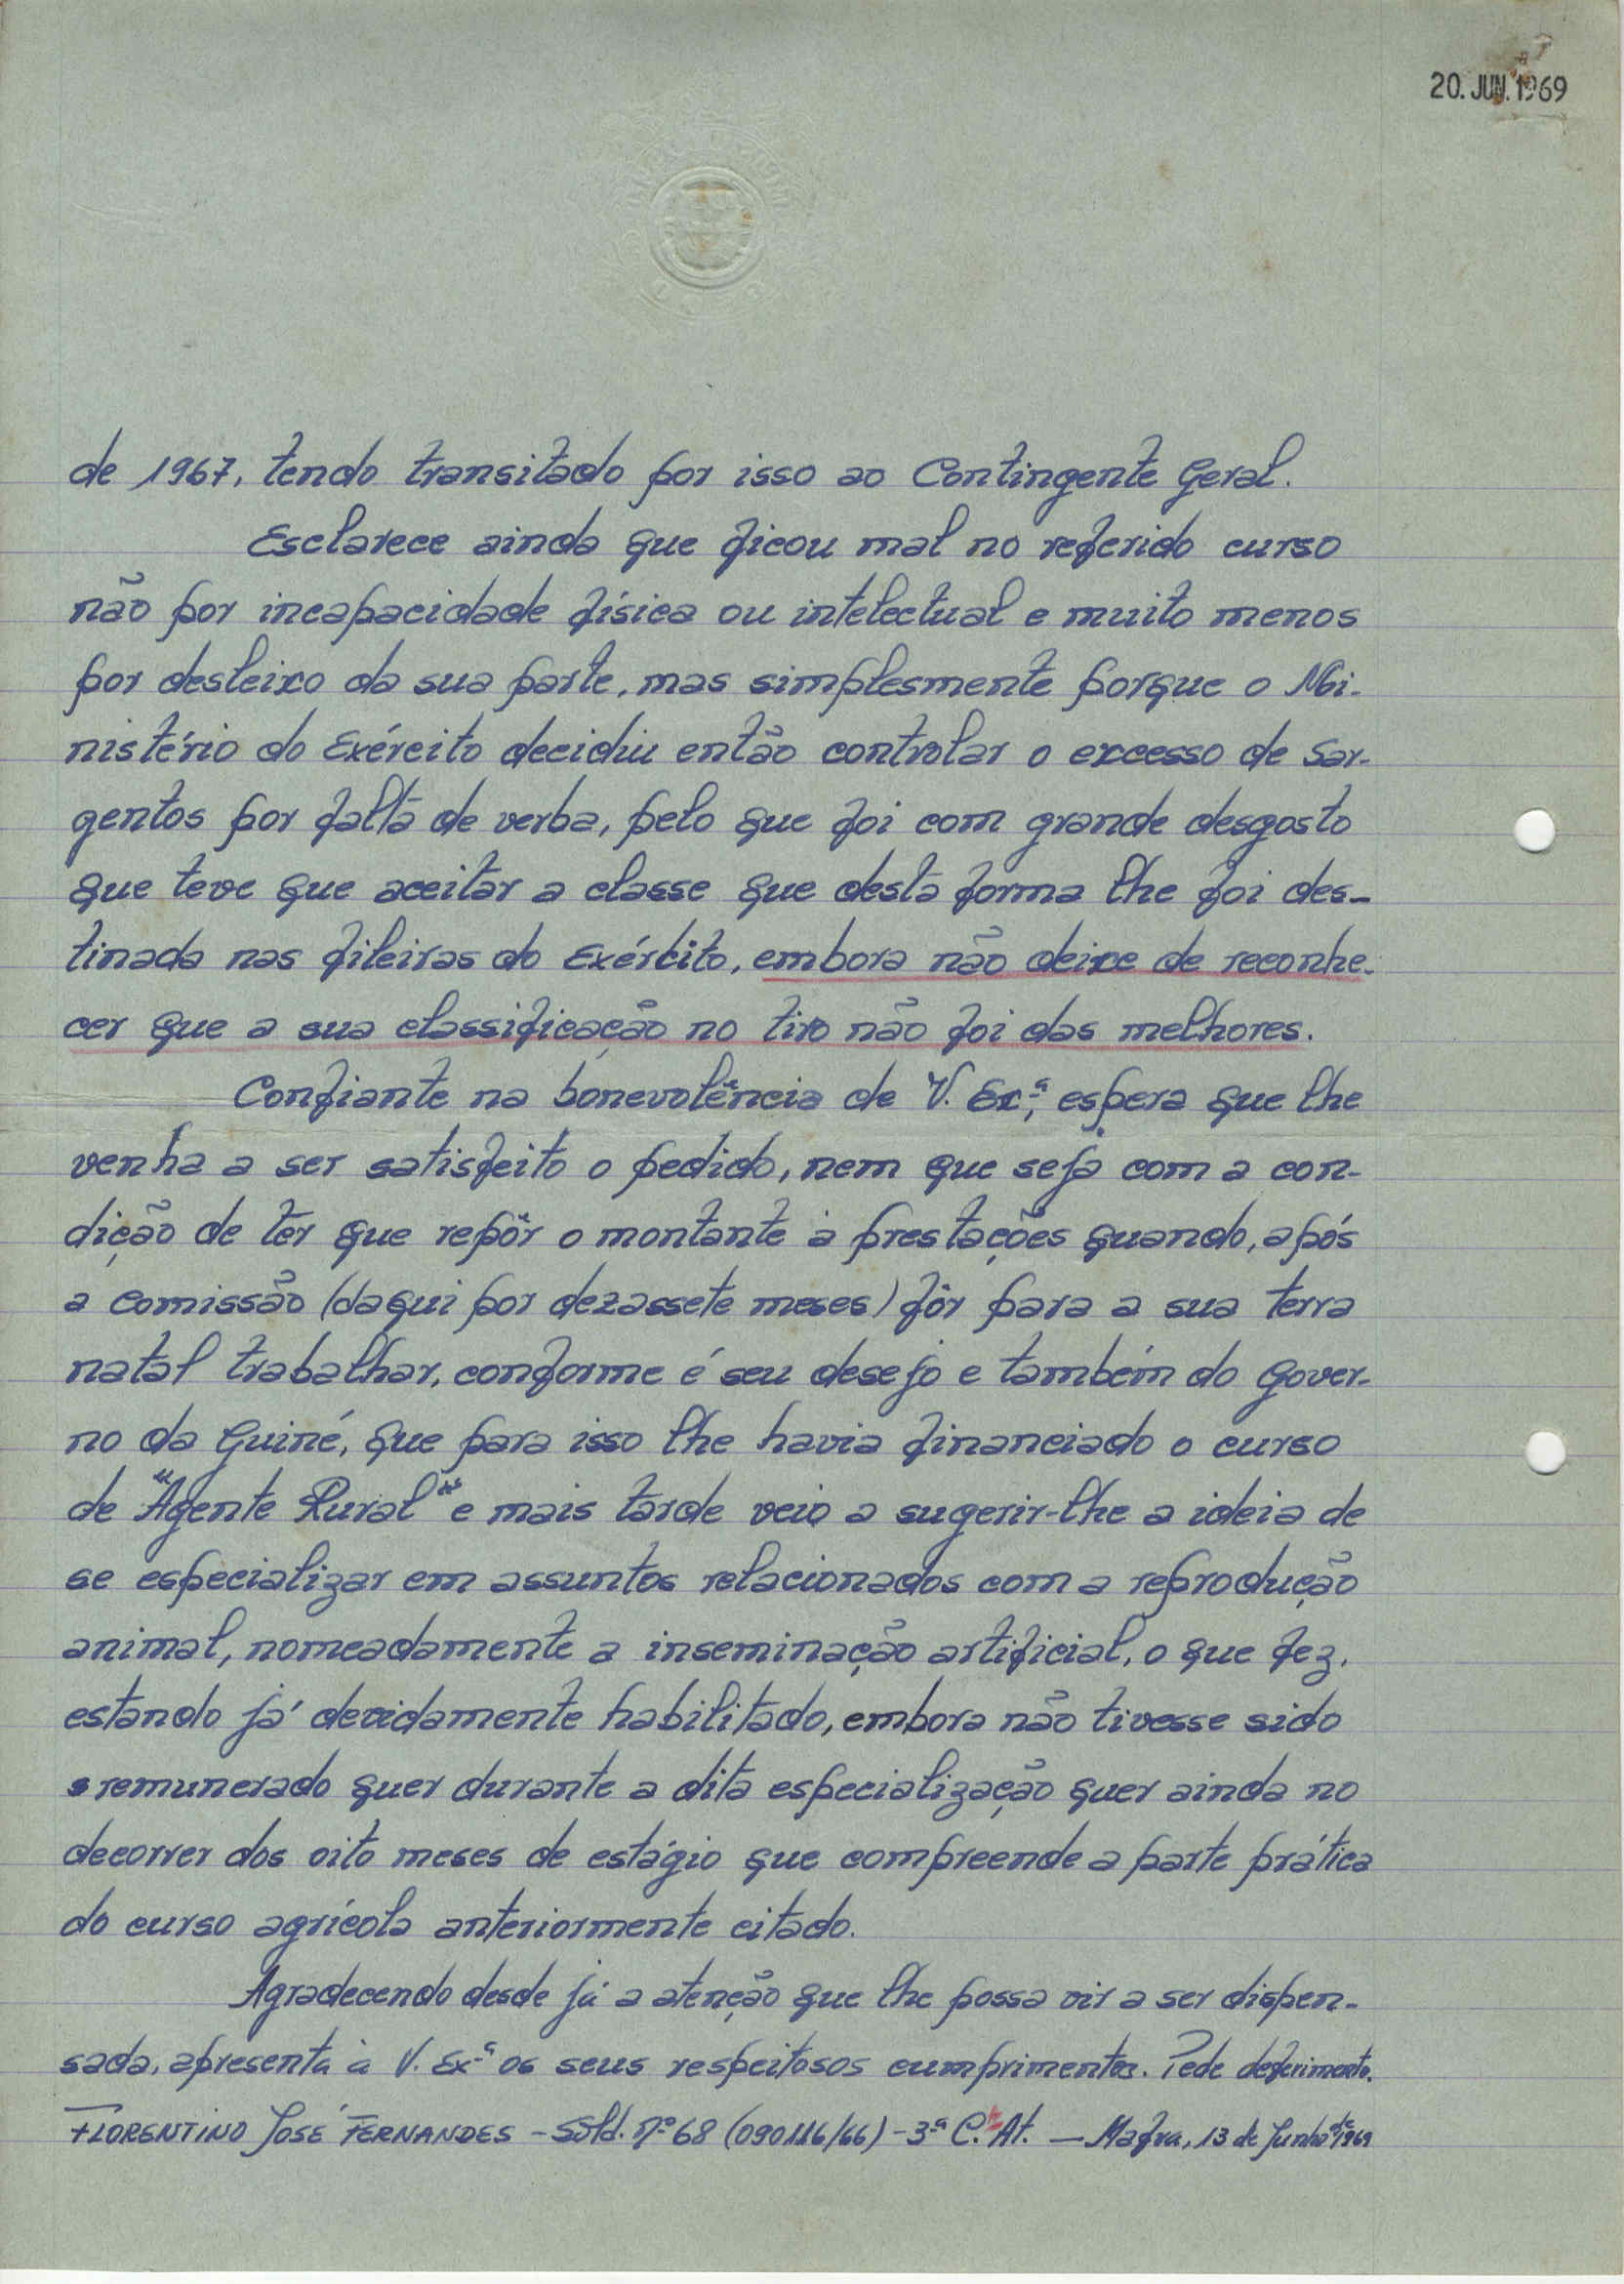 20. JUN. 1969
de 1967, tendo transitado por isso ao Contingente Geral.
Esclarece ainda que ficou mal no referido curso
não por incapacidade física ou intelectual e muito menos
por desleixo da sua parte, mas simplesmente porque o Mi-
nistério do Exército decidiu então controlar o excesso de Sar-
gentos por falta de verba, pelo que foi com grande desgosto
que teve que aceitar a classe que desta forma lhe foi des-
tinada nas fileiras do Exército, embora não deixe de reconhe-
cer que a sua classificação no tiro não foi das melhores.
Confiante na bonevolência de V. Exª, espera que lhe
venha a ser satisfeito o pedido, nem que seja com a con-
dição de ter que repôr o montante à prestações quando, após
a comissão (daqui por dezassete meses) fôr para a sua terra
natal trabalhar, conforme é seu desejo e também do Gover-
no da Guiné, que para isso lhe havia financiado o curso
de "Agente Rural" e mais tarde veio a sugerir-lhe a ideia de
se especializar em assuntos relacionados com a reprodução
animal, nomeadamente a inseminação artificial, o que fez,
estando já devidamente habilitado, embora não tivesse sido
remunerado quer durante a dita especialização quer ainda no
decorrer dos oito meses de estágio que compreende a parte prática
do curso agrícola anteriormente citado.
Agradecendo desde já a atenção que lhe possa vir a ser dispen-
sada, apresenta à V. Exª os seus respeitosos cumprimentos. Pede deferimento.
FLORENTINO JOSÉ FERNANDES - Sold. nº 68 (090116/66) - 3ª C. At. — Mafra, 13 de Junho de 1969